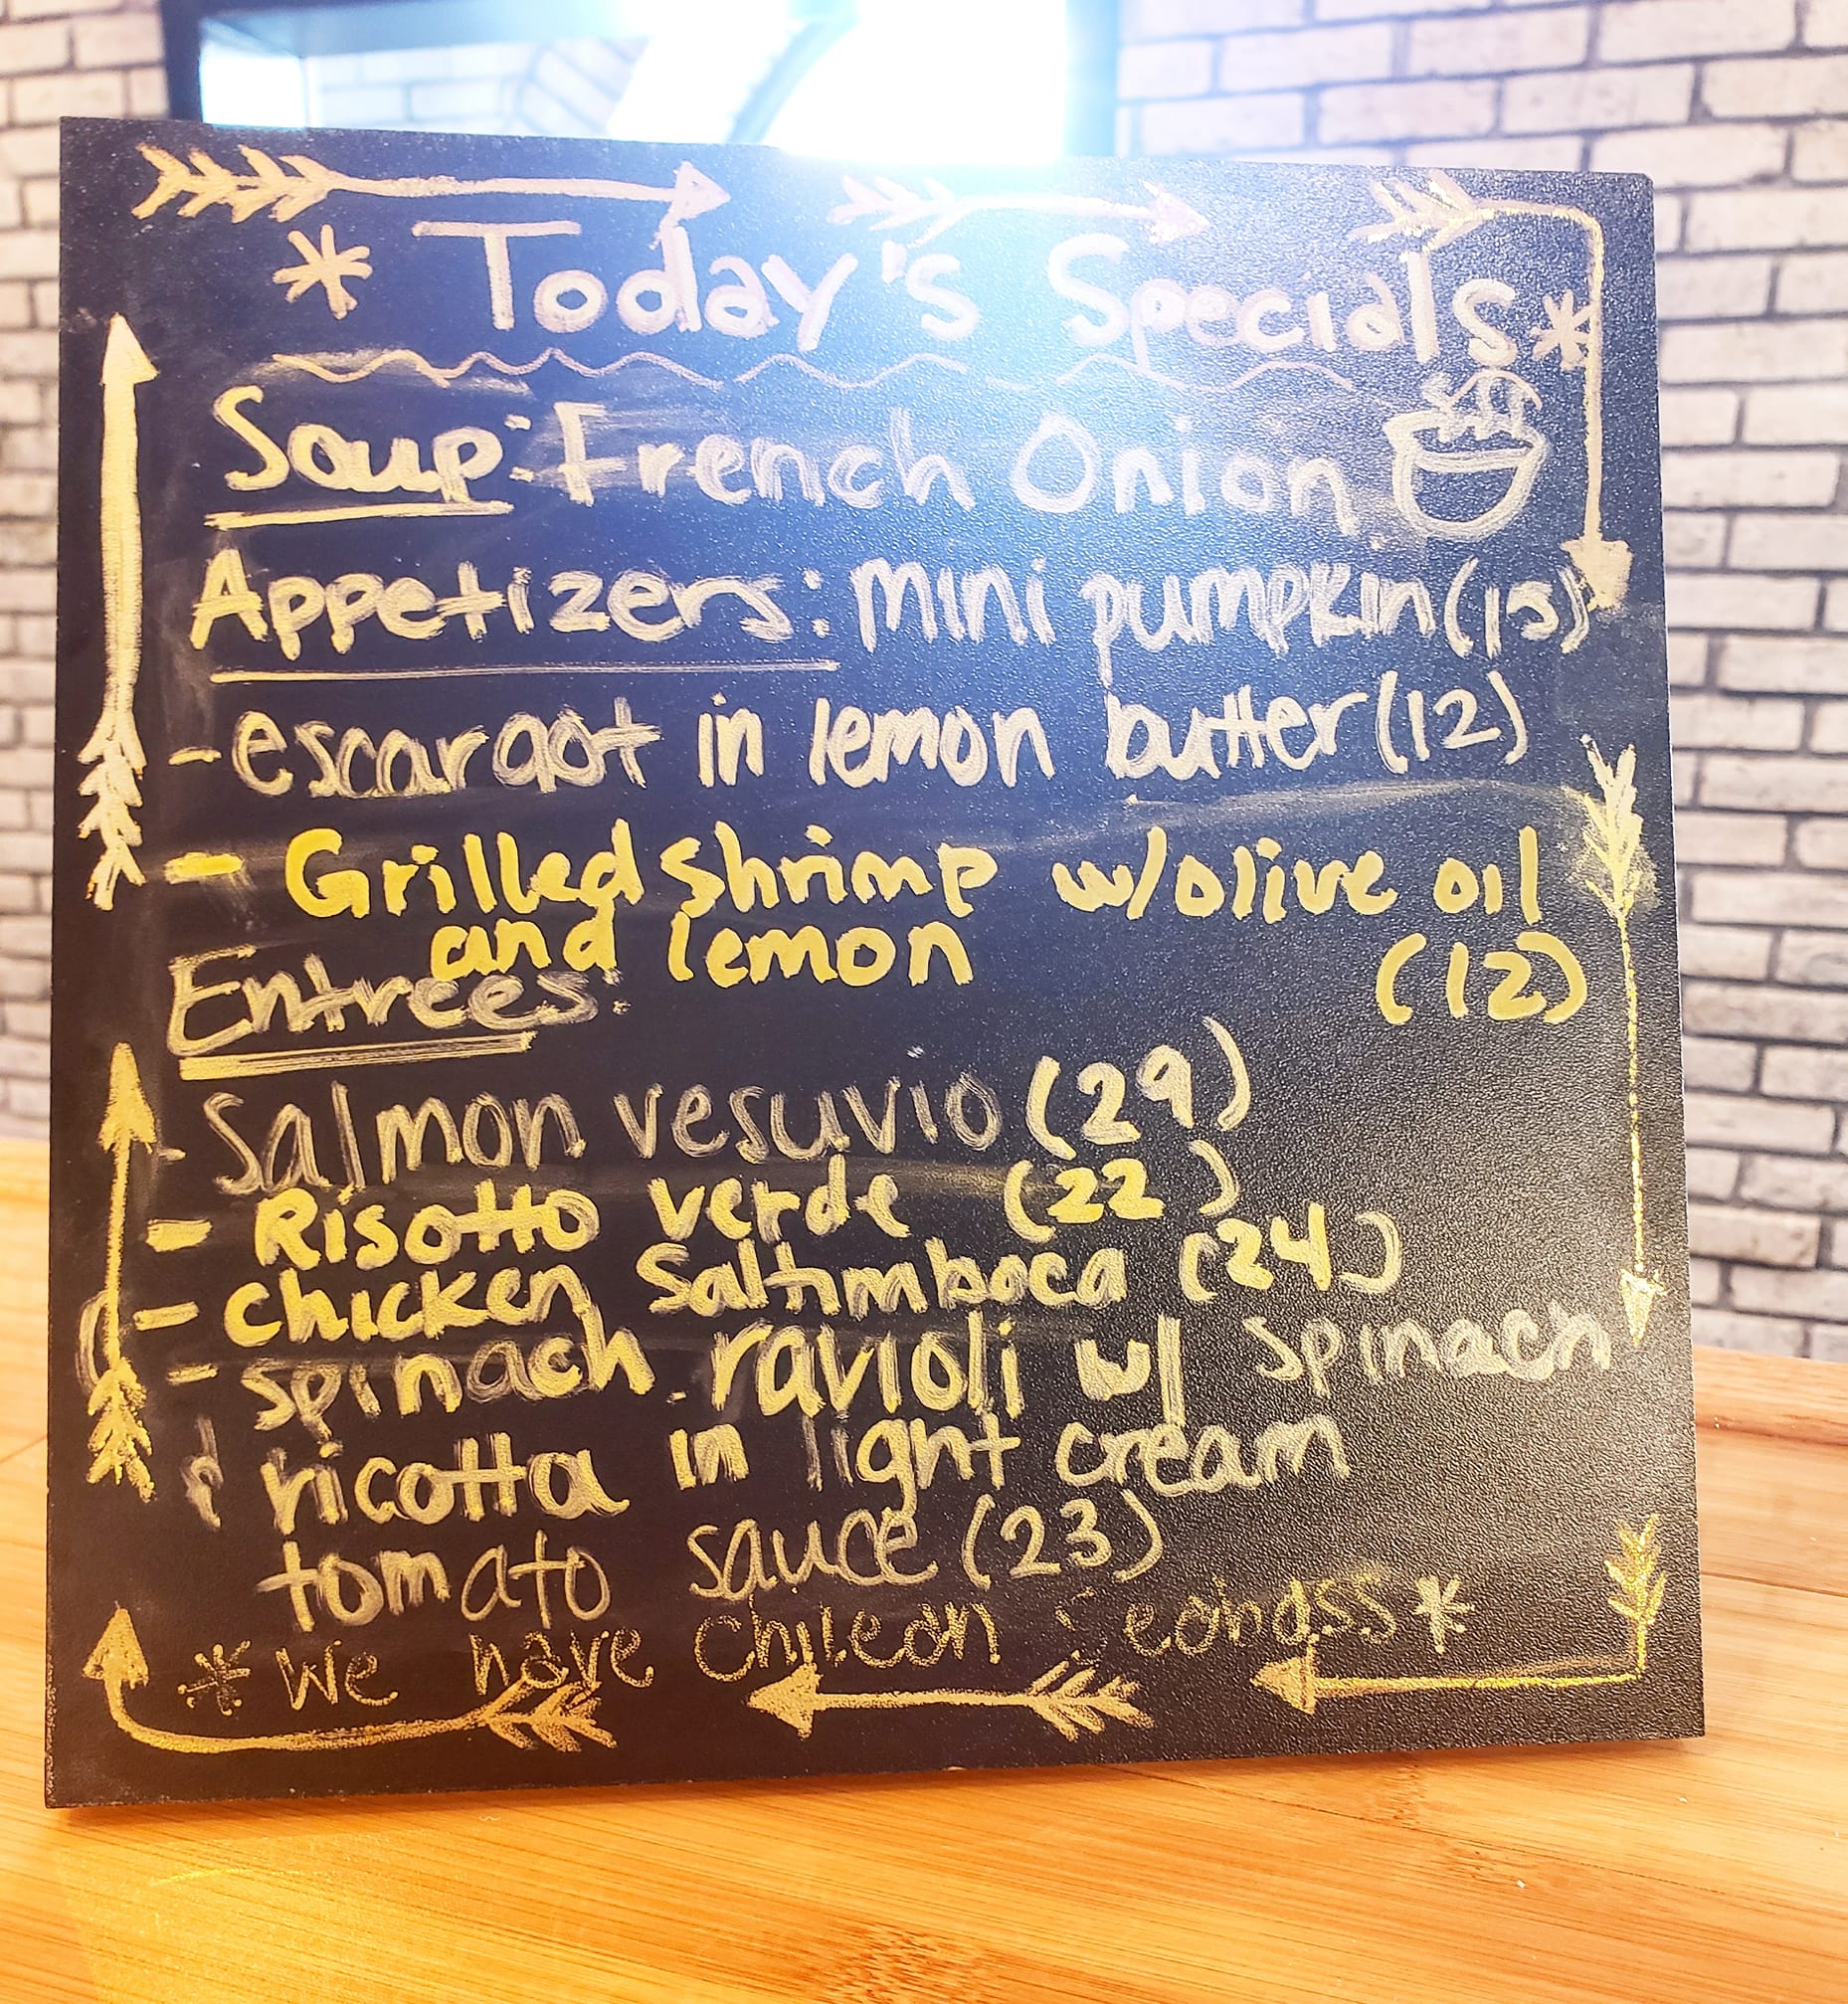 * Today's Specials *
Soup: French Onion
Appetizers: mini pumpkin (15)
- escargot in lemon butter (12)
- Grilled shrimp w/olive oil
and lemon (12)
Entrees:
- Salmon vesuvio (29)
- Risotto verde (22)
- chicken Saltimboca (24)
- spinach ravioli w/ spinach
ricotta in light cream
tomato sauce (23)
* We have Chilean *